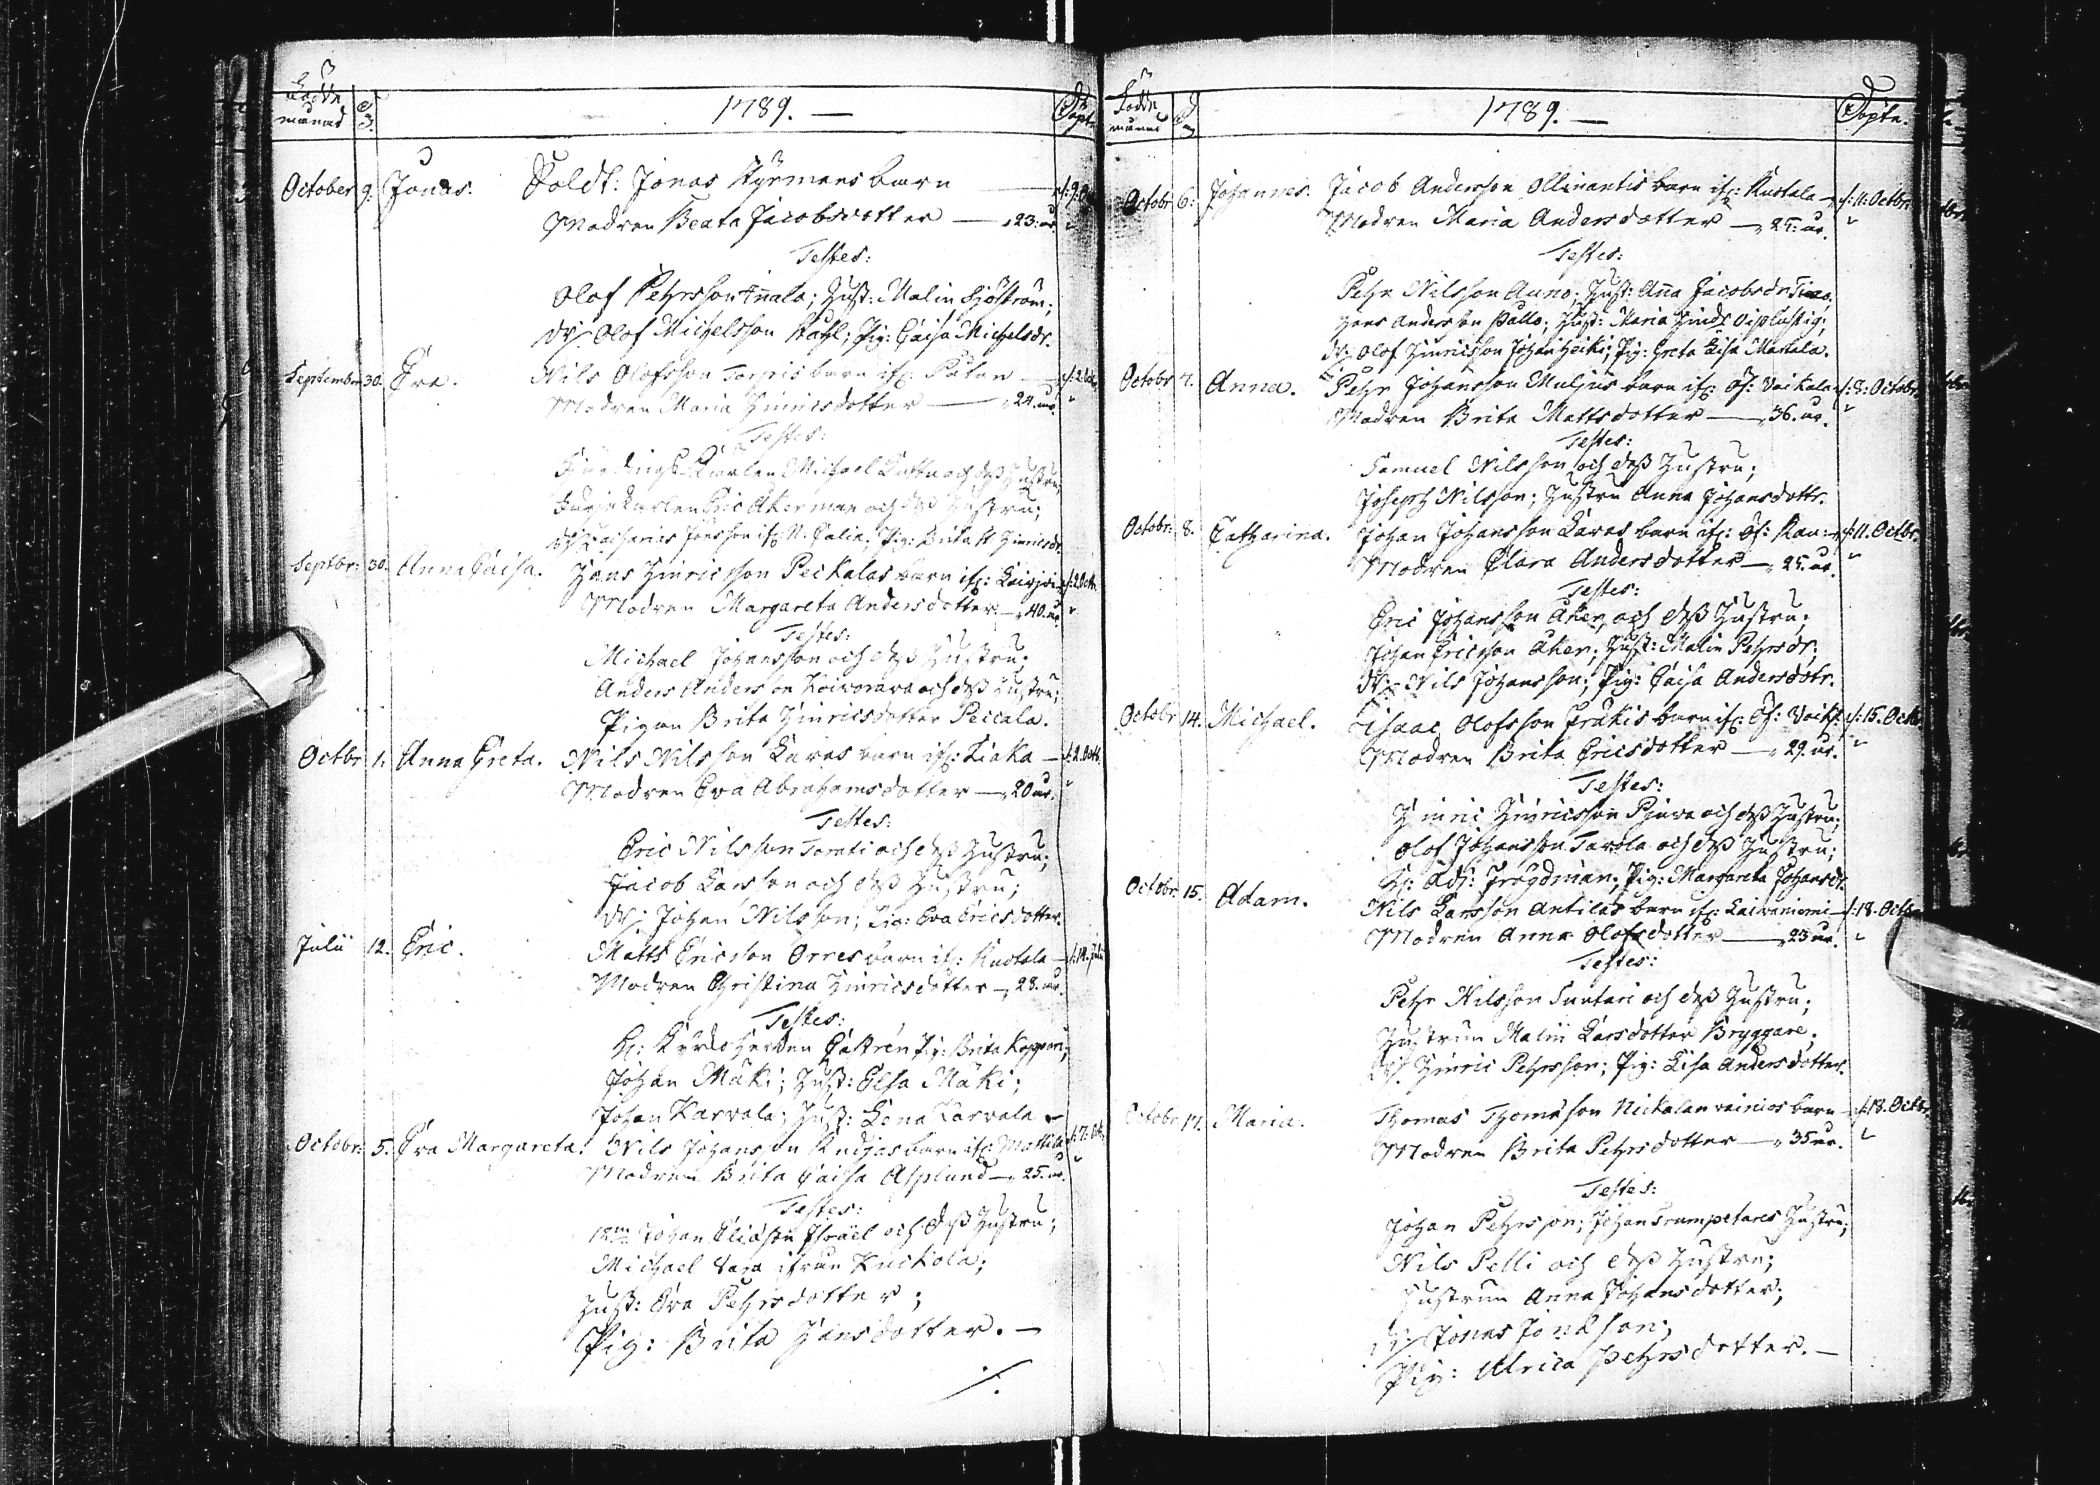 Födde
månad
D.
1789. —
Döpte
October 9. Jonas. Soldt: Jonas Styrmans barn
Modren Beata Jacobsdotter — 23: år
Testes:
Olof Pehrsson Annala; Hust: Malin Sjöström;
Dr: Olof Michelsson Kohl; Pig: Caisa Michelsdr.
September 30. Eva. Nils Olofsson Torpis barn if:
Modren Maria Hinricsdotter — 24. år
Testes:
Michael och dess hustru;
Eric Åkerman och dess hustru;
Pig: Brita Hinricsdr
Septbr: 30. Anna Caisa. Hans Hinricsson Peckalas barn if: 2 Octb.
Modren Margareta Andersdotter — 40. år
Testes:
Michael Johansson och dess hustru;
Anders Andersson Koivorava och dess hustru;
Pigan Brita Hinricsdotter Peccala.
Octbr 1. Anna Greta. Nils Nilsson Karas barn if: Liaka — 2. Octb
Modren Eva Abrahamsdotter — 20 år.
Testes:
Eric Nilsson Torati och dess hustru;
Jacob Larsson och dess hustru;
Dr: Johan Nilsson; Pig: Eva Ericsdotter.
Julii 12. Eric. Matts Ericsson Orres barn if: Kustola — 14. Juli
Modren Christina Hinricsdotter — 28. år.
Testes:
H: Kyrkoherden Castrén Pig: Brita Koppari;
Johan Mäki; Hust: Elsa Mäki;
Johan Karvala; Hust: Lena Karvala
Octobr: 5. Eva Margareta. Nils Johansson Knihjas barn if: Mattila 7. Oct
Modren Brita Caisa Asplund — 25. år.
Testes:
Johan Eliasson Israel och dess hustru;
Michael Vara ifrån Kuckola;
Hust: Eva Pehrsdotter;
Pig: Brita Hansdotter. —
./.
Födde
månad
D.
1789. —
Döpte.
Octobr 6. Johannes. Jacob Andersson Ollinantis barn if: Kustola — 11. Octbr.
Modren Maria Andersdotter — 25. år.
Testes:
Pehr Nilsson Auno; Hust: Anna Jacobsdr
Hans Andersson Pallo; Hust: Maria Hindr
Dr: Olof Hinricsson Johan Heiki; Pig: Greta Lisa Martala.
Octobr 7. Anna. Pehr Johansson Muljus barn if: Öf: Voikala 8. Octobr.
Modren Brita Mattsdotter — 36. år.
Testes:
Samuel Nilsson och dess hustru;
Joseph Nilsson; Hustru Anna Johansdottr.
Octobr: 8. Catharina. Johan Johansson Karas barn if: Öf: 11. Octbr.
Modren Clara Andersdotter — 25. år.
Testes:
Eric Johansson Åker, och dess hustru;
Johan Ericsson Åker; Hust: Malin Pehrsdr;
Dr: Nils Johansson; Pig: Caisa Andersdotr.
Octobr 14. Michael. Isaac Olofsson Fräkis barn if: Öf: Voik: 15. Octb
Modren Brita Ericsdotter — 29. år.
Testes:
Hinric Hinricsson och dess hustru;
Olof Johansson Tavola och dess hustru;
H: Adj: Frögdman; Pig: Margareta Johansdr.
Octobr. 15. Adam. Nils Larsson Antilas barn if: Laivaniemi — 18. Octb
Modren Anna Olofsdotter — 23 år.
Testes:
Pehr Nilsson Suntari och dess hustru;
Hustrun Malin Larsdotter Bryggare;
Dr: Hinric Pehrsson; Pig: Lisa Andersdotter.
Octobr 17. Maria. Thomas Thomasson Nickalan vainios barn — 18. Octbr.
Modren Brita Pehrsdotter — 35 år.
Testes:
Johan Pehrsson; Johan Trumpetares hustru;
Nils Pelli och dess hustru;
Hustrun Anna Johansdotter;
Dr: Jonas Jonasson;
Pig: Ulrica Pehrsdotter. —